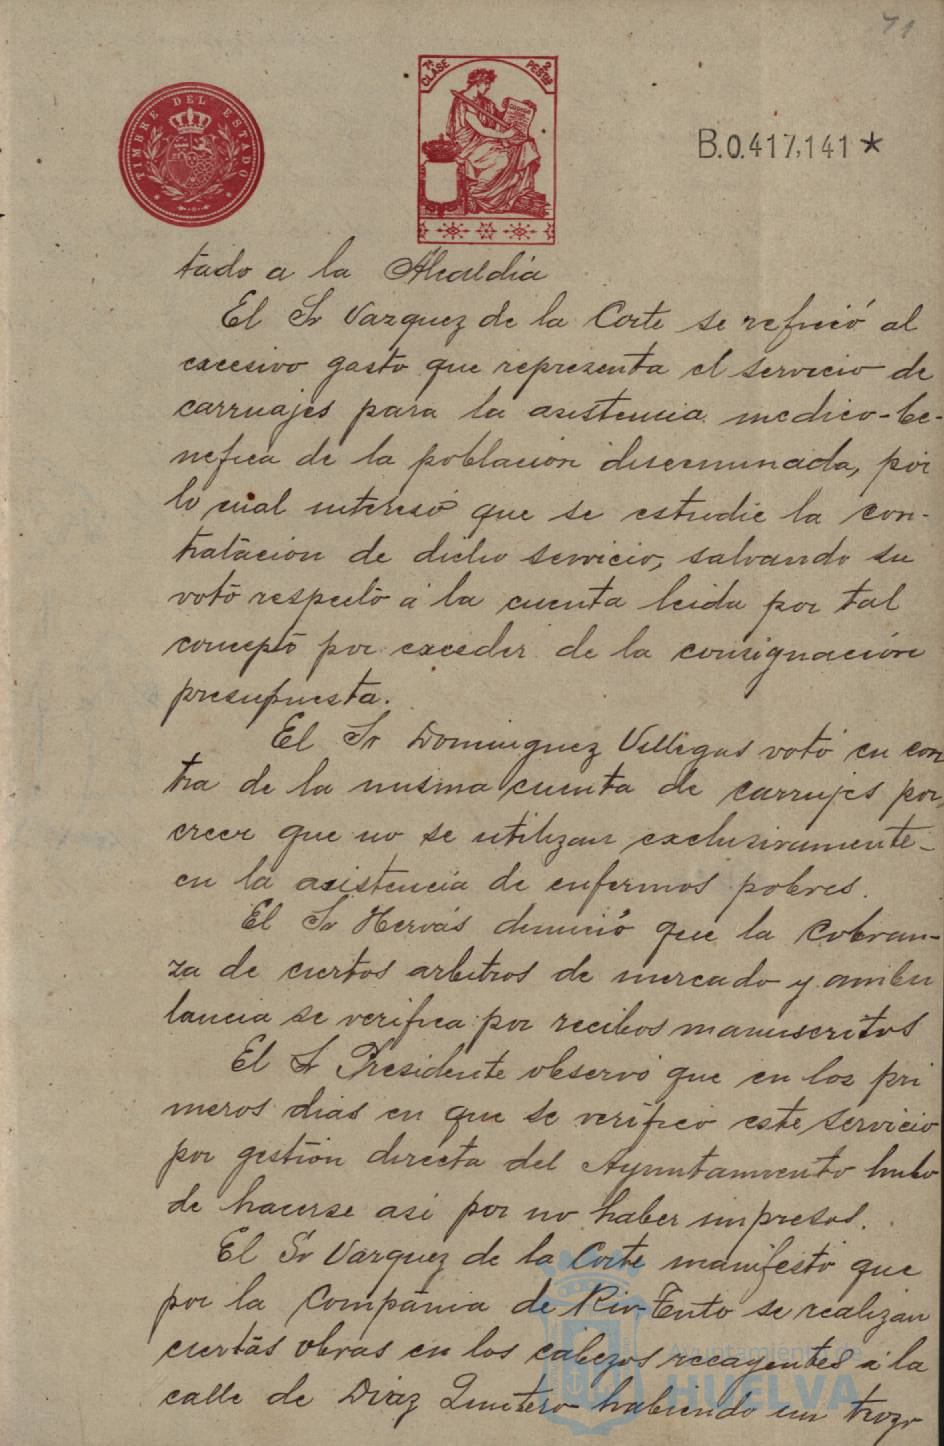 71
TIMBRE DEL ESTADO
7ª CLASE
2 PESETAS
B.0.417,141 *
tado a la Alcaldia
El Sr Vazquez de la Corte se refirió al
excesivo gasto que representa el servicio de
carruajes para la asistencia medico-be-
nefica de la población diseminada, por
lo cual interesó que se estudie la con-
tratación de dicho servicio, salvando su
voto respecto a la cuenta leida por tal
concepto por exceder de la consignación
presupuesta.
El Sr Dominguez Villegas votó en con
tra de la misma cuenta de carrujes por
creer que no se utilizan exclusivamente-
en la asistencia de enfermos pobres.
El Sr Hervás denunció que la cobran-
za de ciertos arbitros de mercado y ambu
lancia se verifica por recibos manuscritos
El Sr Presidente observó que en los pri
meros dias en que se verificó este servicio
por gestión directa del Ayuntamiento hubo
de hacerse asi por no haber impresos.
El Sr Vazquez de la Corte manifestó que
por la Compañia de Rio-Tinto se realizan
ciertas obras en los cabezos recayentes a la
calle de Diaz Quintero habiendo un trozo
Ayuntamiento de
HUELVA